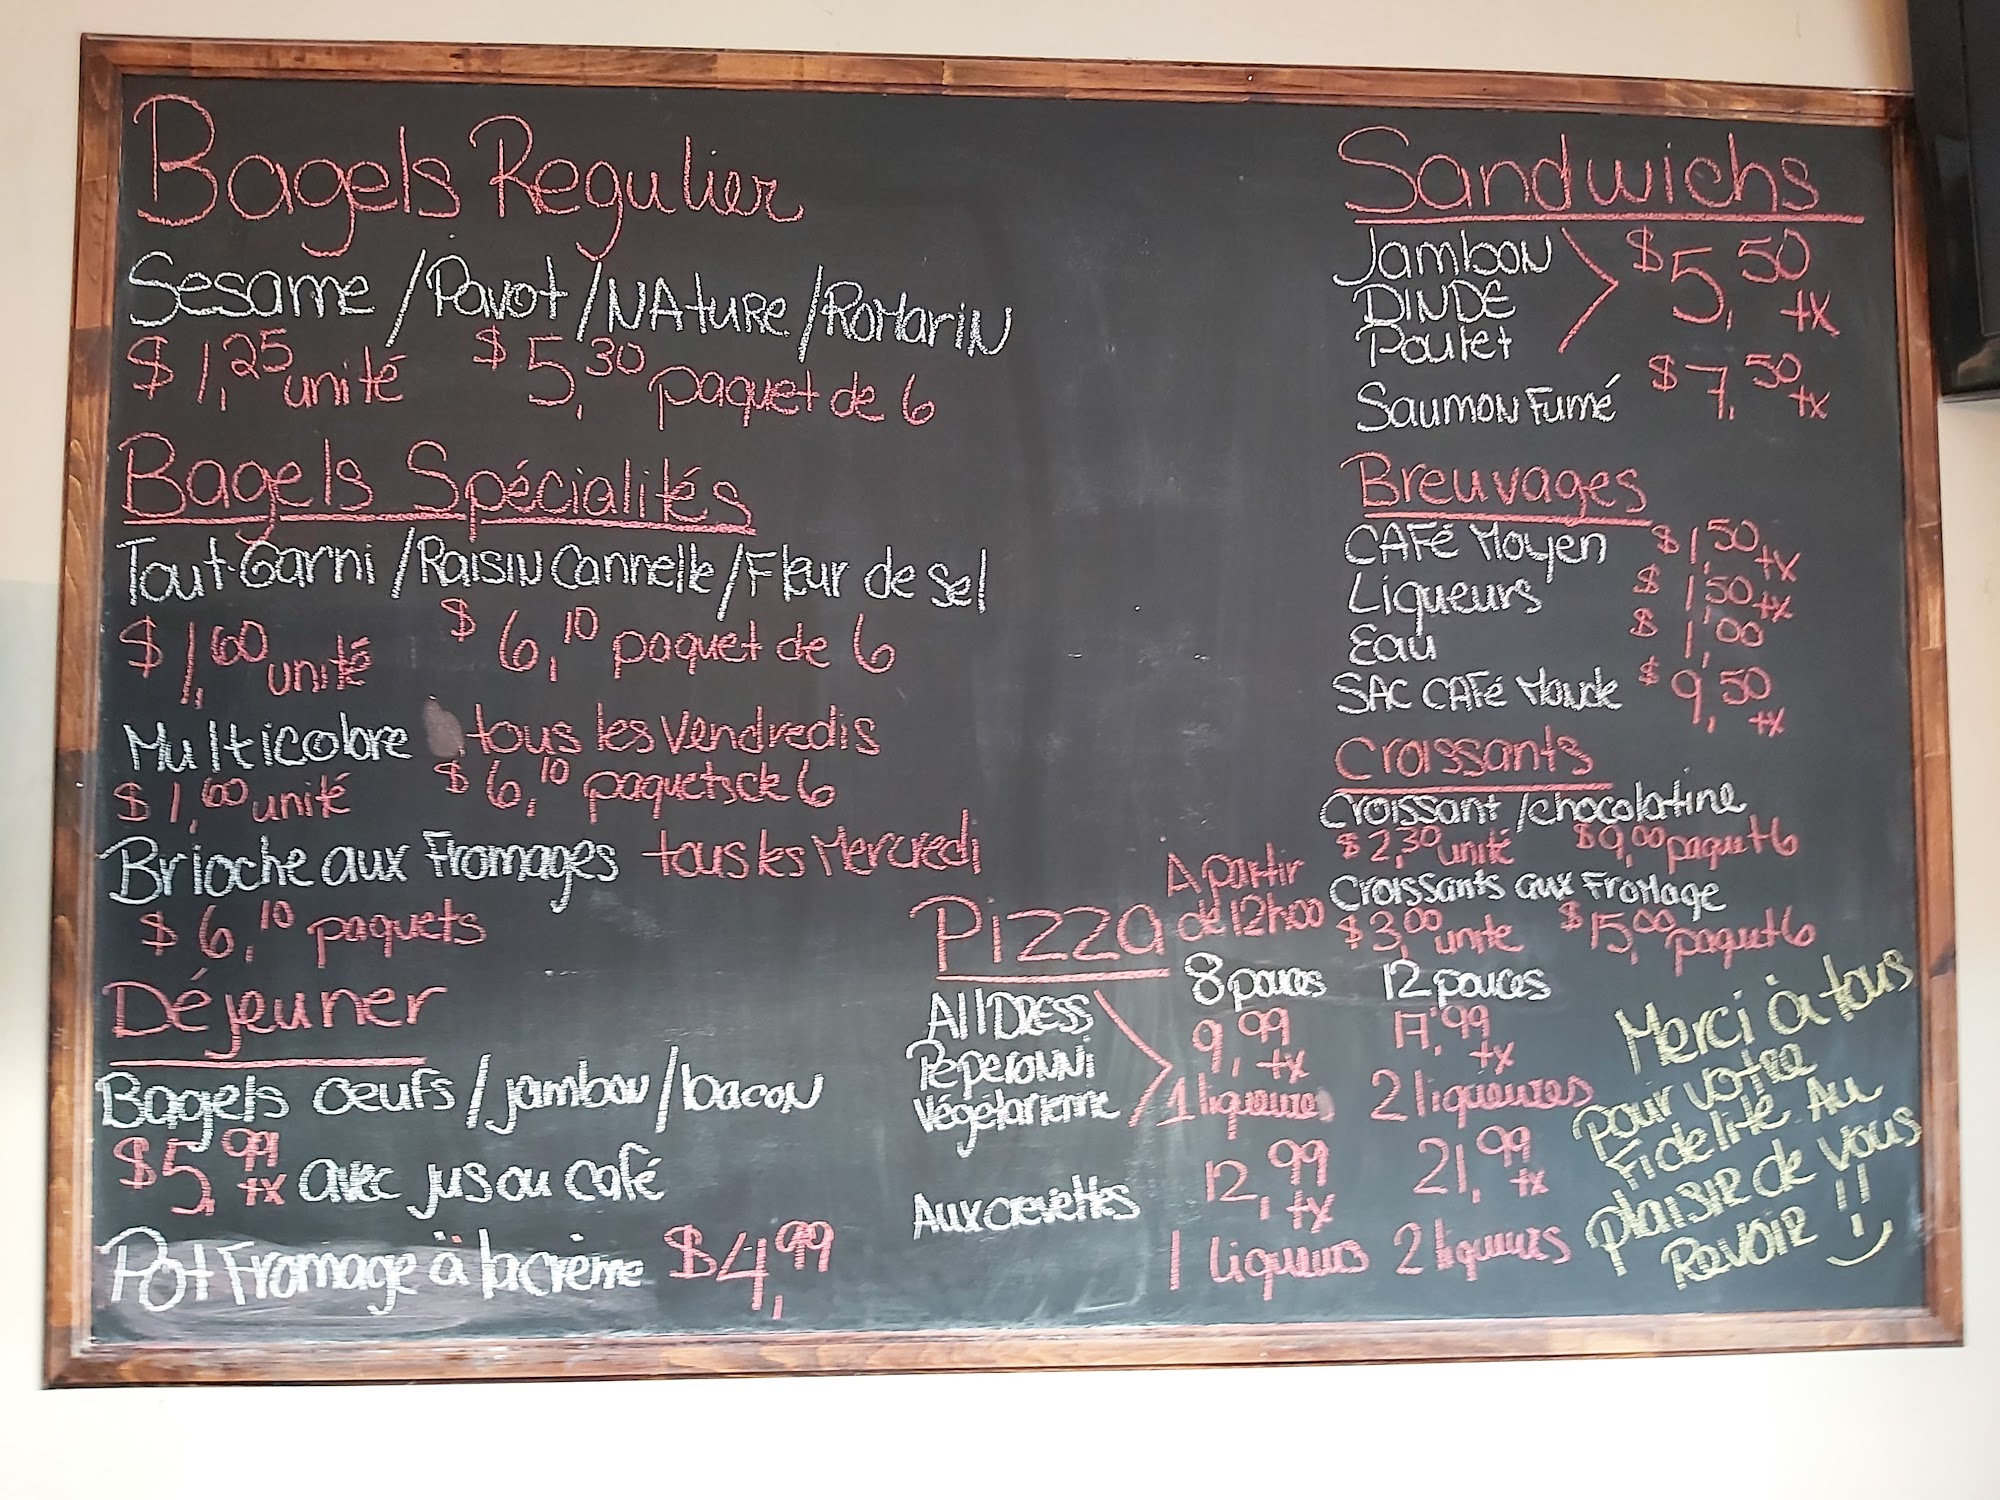 Bagels Regulier
Sesame / Pavot / NAtuRe / RoMariN
$1,25 unité $5,30 paquet de 6
Bagels Spécialités
Tout Garni / RaisiN Cannelle / Fleur de Sel
$1,60 unité $6,10 paquet de 6
Multicolore tous les Vendredis
$1,60 unité $6,10 paquets de 6
Brioche aux Fromages tous les Mercredi
$6,10 paquets
Déjeuner
Bagels oeufs / jambon / bacoN
$5,99 tx avec jus ou café
Pot Fromage à la crème $4,99
Sandwichs
JamboN
DINDE
Poulet
$5,50 tx
SaumoN Fumé $7,50 tx
Breuvages
CAFé Moyen $1,50 tx
Liqueurs $1,50 tx
Eau $1,00
SAC CAFé Moude $9,50 tx
Croissants
Croissant / chocolatine
$2,30 unité $9,00 paquet 6
Croissants aux FroMage
$3,00 unite $15,00 paquet 6
Pizza A partir
de 12h00
8 pouces 12 pouces
All DRESS
PepeRoNNi
Végétarienne
9,99 tx 17,99 tx
1 liqueures 2 liqueures
Aux crevettes 12,99 tx 21,99 tx
1 Liqueurs 2 liqueurs
Merci à tous
pour votre
Fidelité. Au
plaisiR de Vous
RevoiR !!